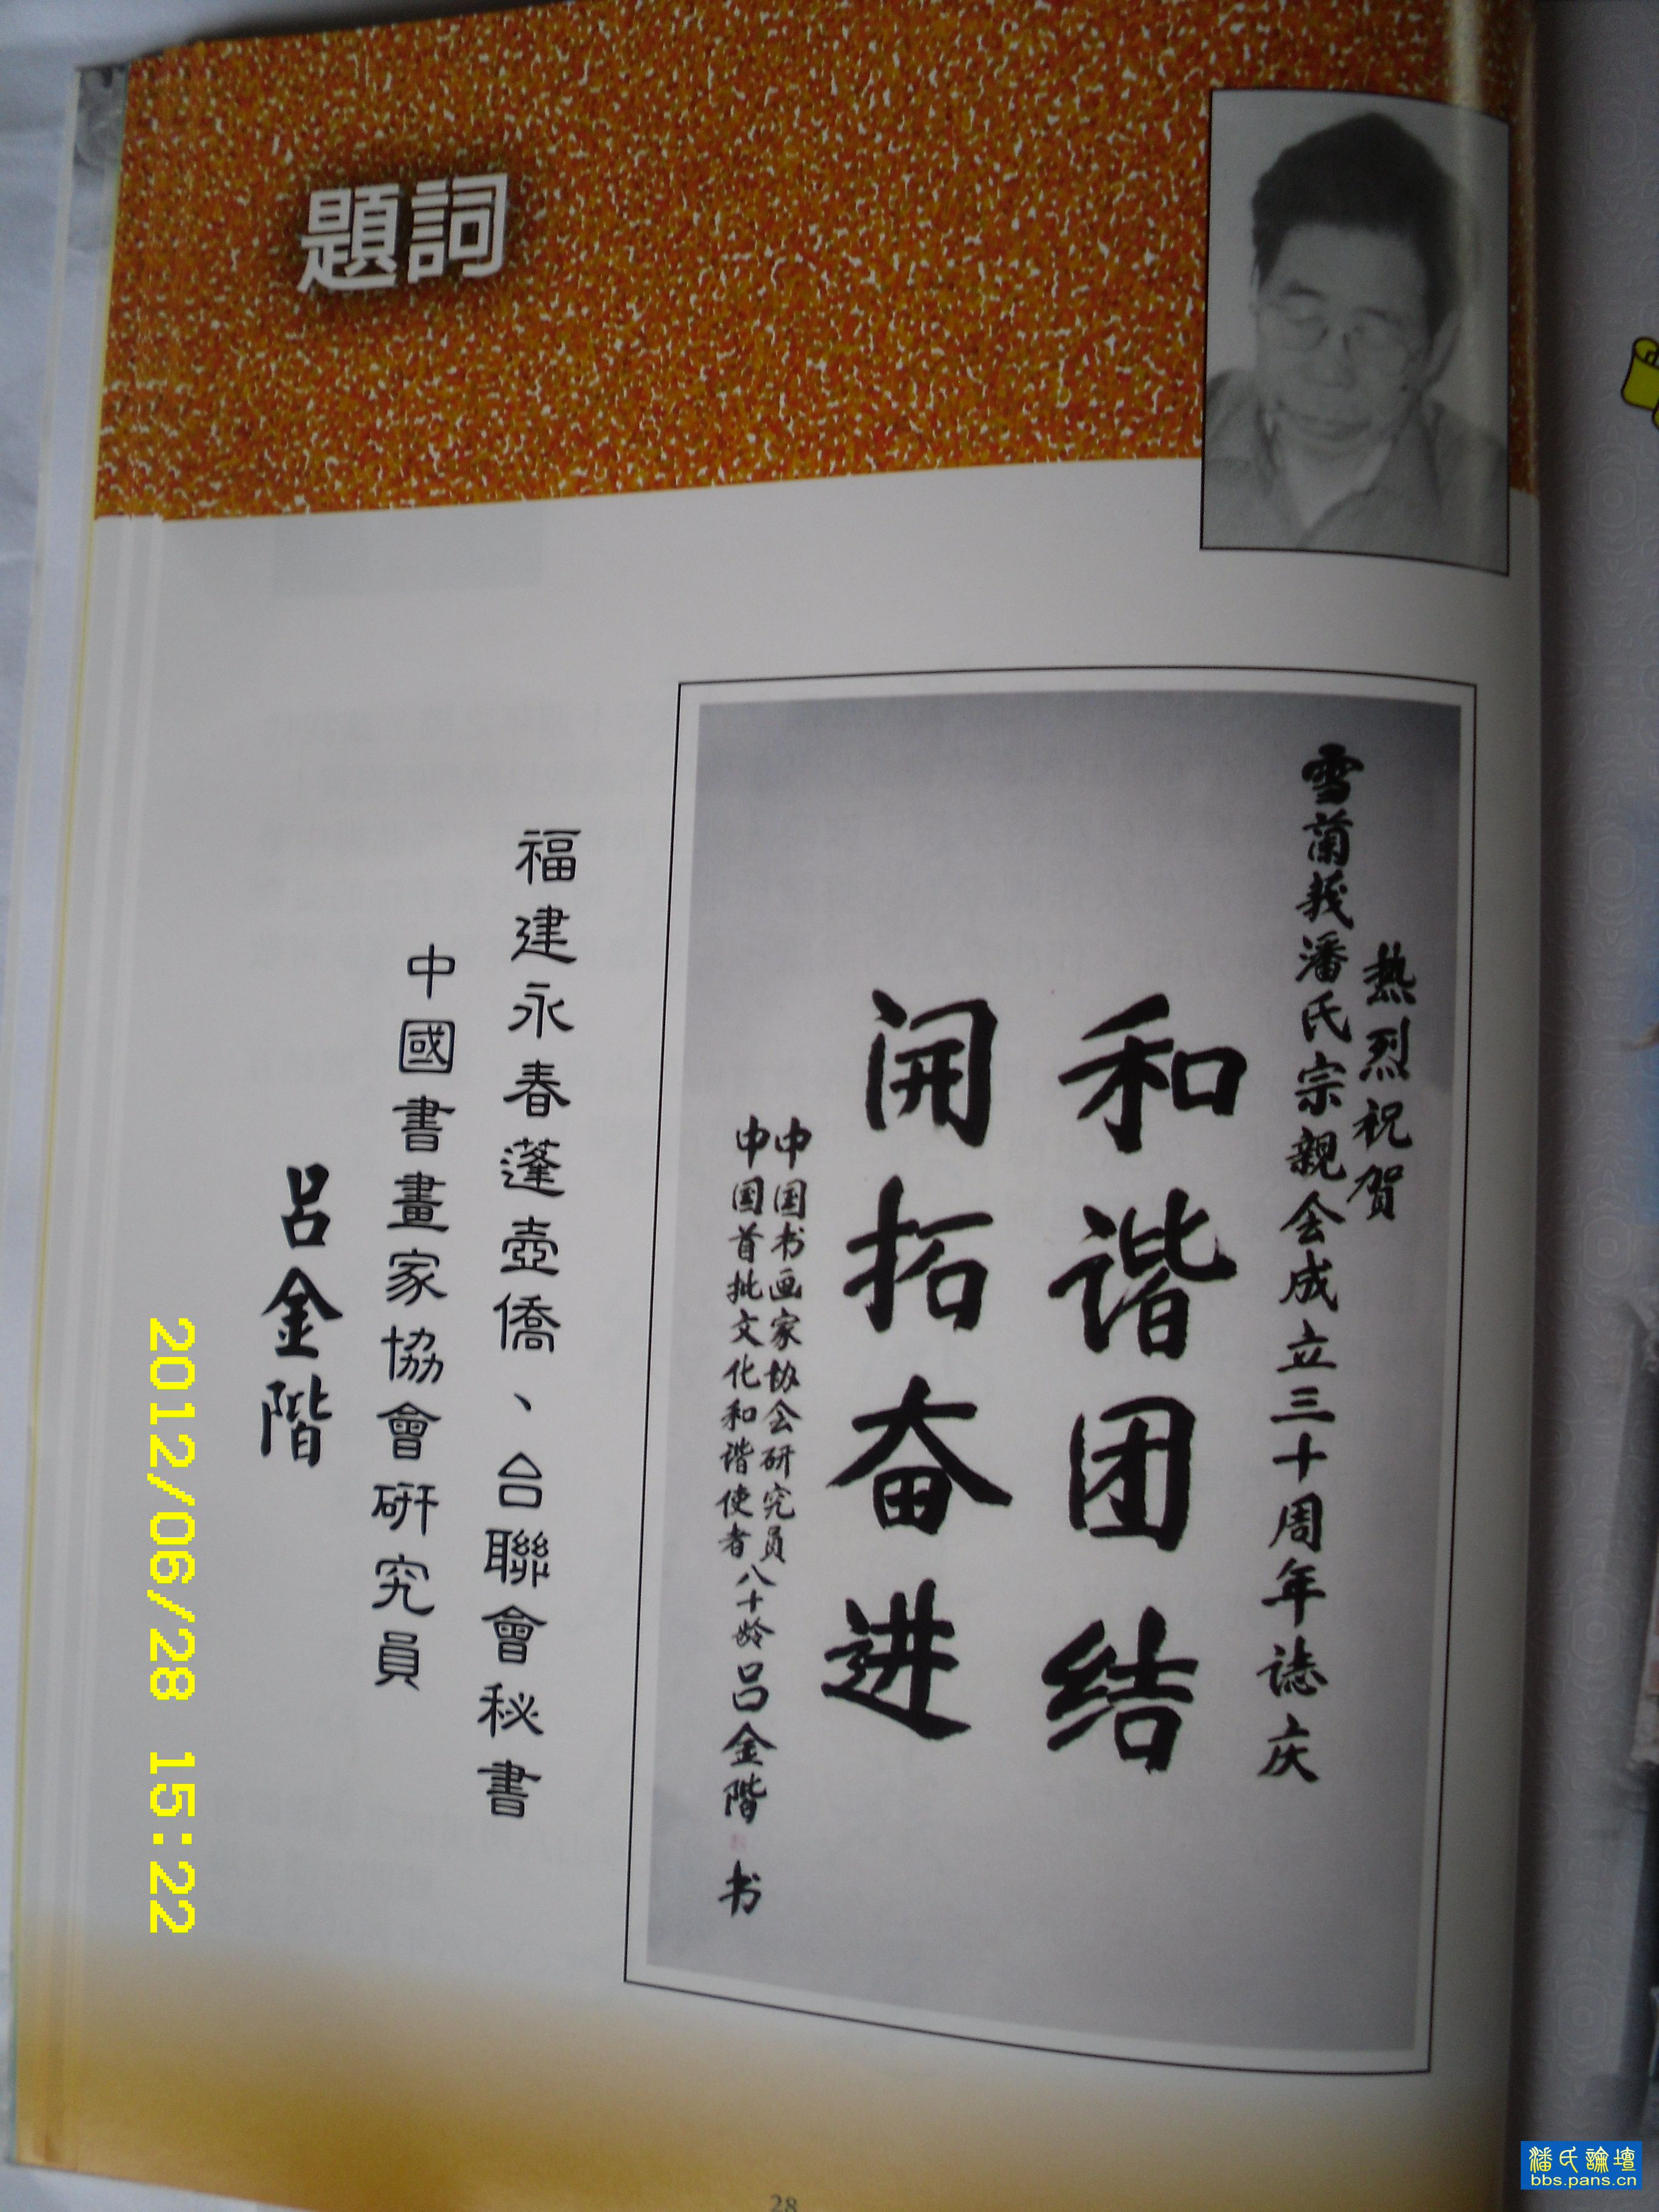 題詞
热烈祝贺
雪蘭莪潘氏宗親会成立三十周年誌庆
和谐团结
开拓奋进
中国书画家协会研究员
中国首批文化和谐使者
八十龄吕金階书
福建永春蓬壺僑、台聯會秘書
中國書畫家協會研究員
呂金階
2012/06/28 15:22
28
潘氏論壇
bbs.pans.cn